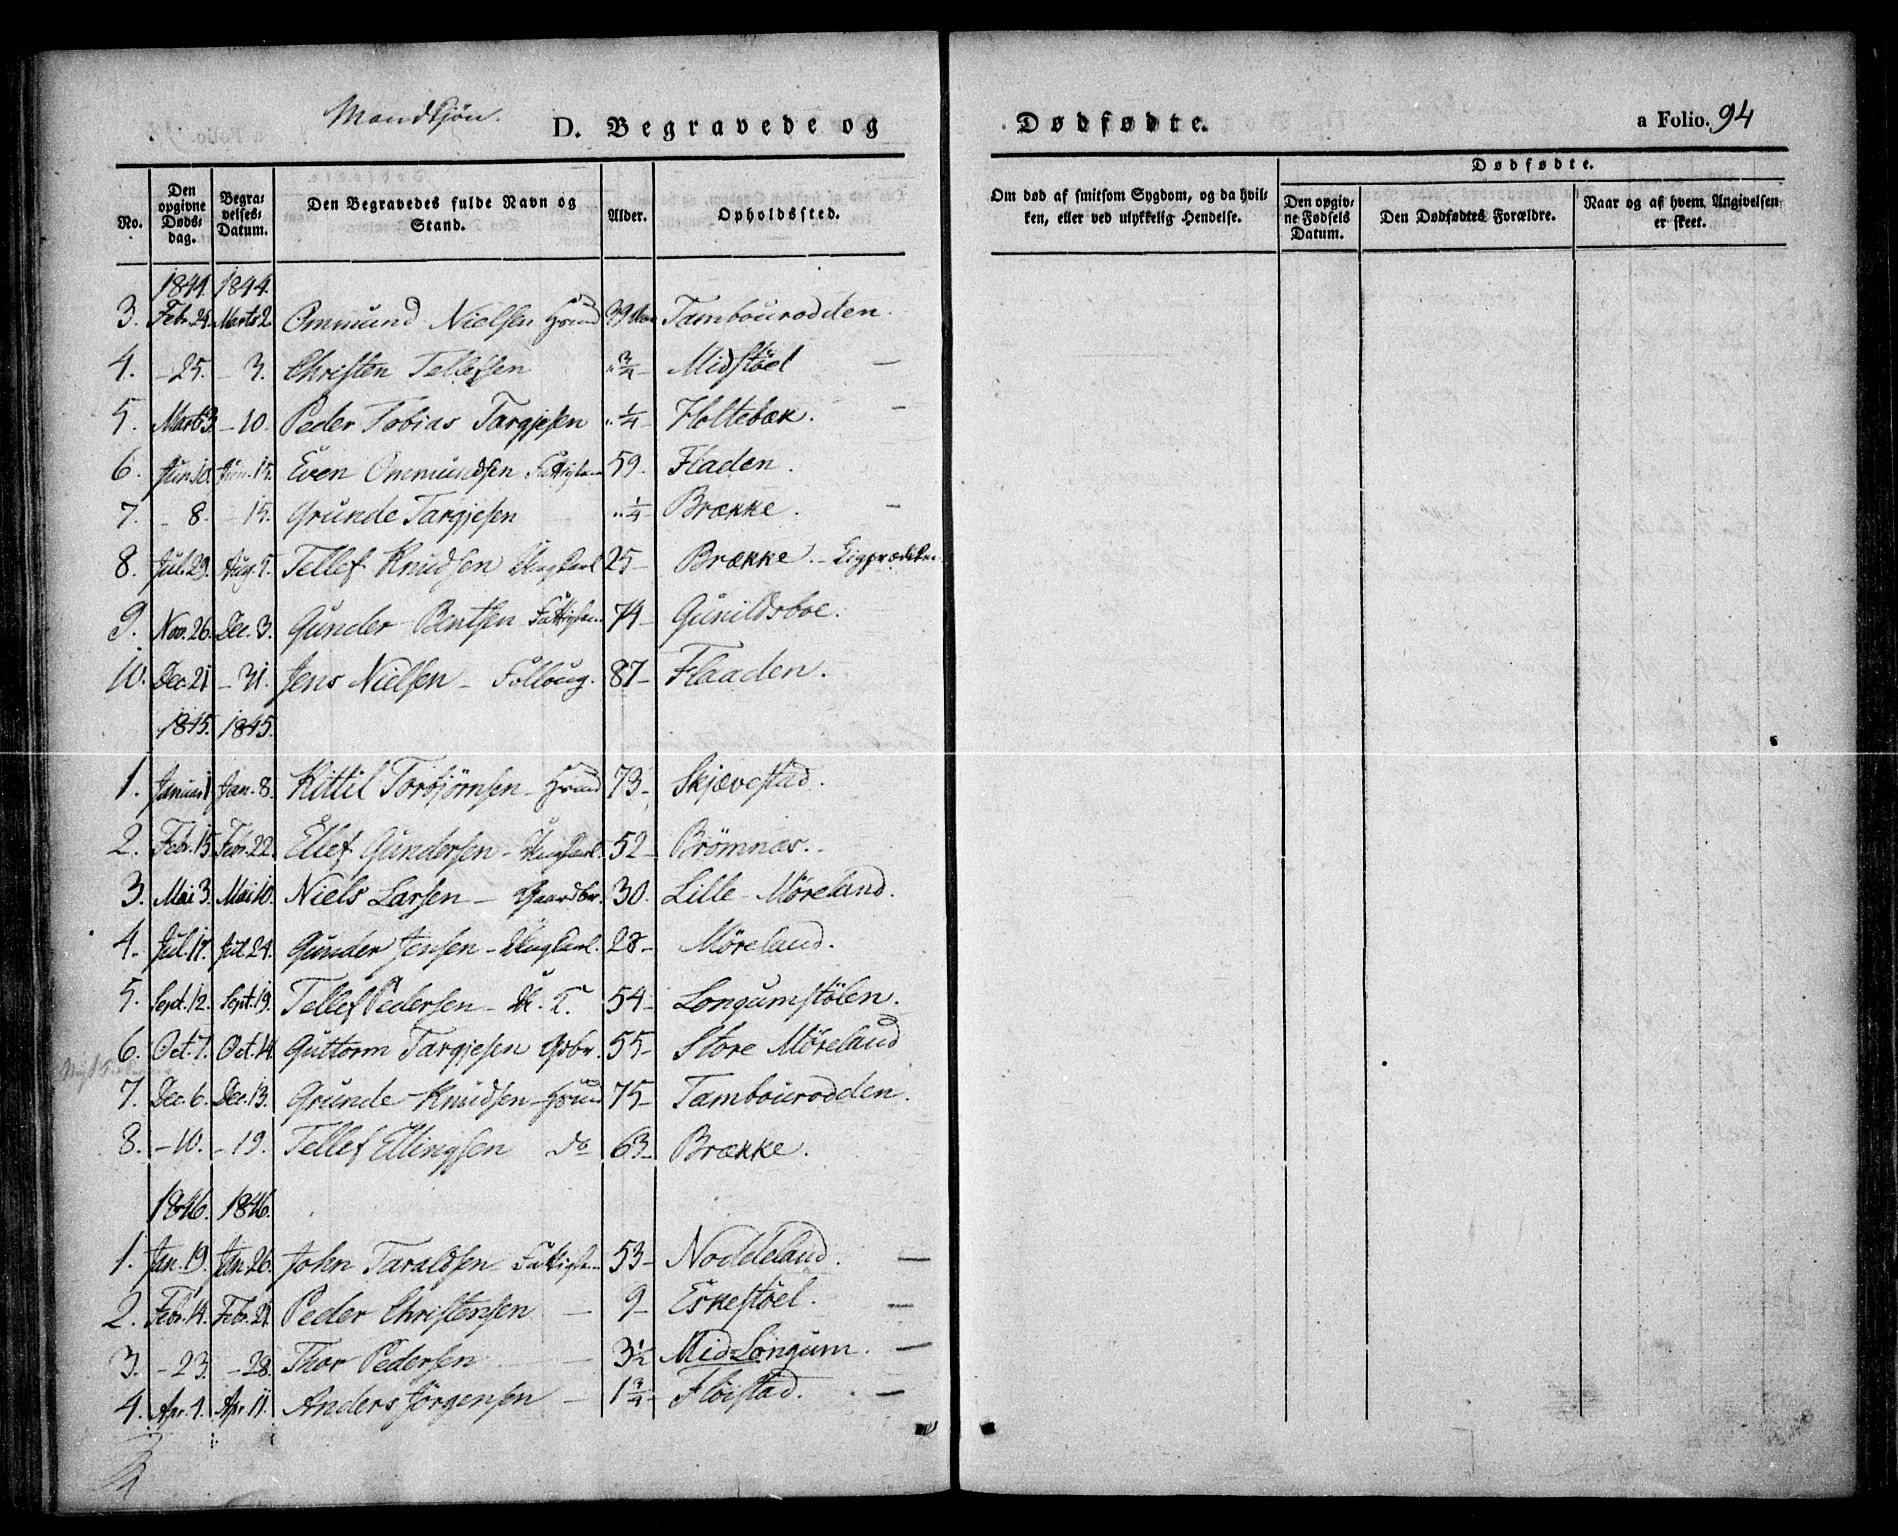 Mandkjön.
D. Begravede og
Dødfødte.
a Folio. 94
No.
Den opgivne Døds-dag.
Begra-velses-Datum.
Den Begravedes fulde Navn og Stand.
Alder.
Opholdssted.
Om død af smitsom Sygdom, og da hvil-
ken, eller ved ulykkelig Hendelse.
Dødfødte.
Den opgiv-ne Fødsels Datum.
Den Dødfødtes Forældre.
Naar og af hvem Angivelsen er skeet.
1844. 1844.
3. Febr. 24. Marts 2. Ommund Nielsen 39 Tambourodden.
4. - 25. - 3. Christen Tellefsen " 3/4 - Midstöel -
5. Marts 3. - 10. Peder Tobias Targjesen " 1/4 - Holtebæk. -
6. Jun. 10. Jun. 15. Even Ommundsen 59. Fladen.
7. - 8. - 15. Grunde Targjesen " 1/4 - Brække. -
8. Jul. 29. Aug. 5. Tellef Knudsen Ungkarl 25 - Brække. - Ligprædiken
9. Nov. 26. Dec. 3. Gunder Bentsen 74 - Gunildsboe.
10. Dec. 21 - 31. Jens Nielsen - Folloug. 87 - Flaaden.
1845. 1845.
1. Januar 1 Jan. 8. Kittil Torbjörnsen - 73 - Skjævestad.
2. Febr. 15 Febr. 22. Ellef Gundersen - Ungkarl. 52 - Brömnæs.
3. Mai 3. Mai 10. Niels Larsen - Gaardbr. 30. Lille - Möreland.
4. Jul. 17. Jul. 24. Gunder Jensen - Ungkarl. 28 - Möreland.
5. Sept. 12. Sept. 19. Tellef Pedersen - 54 - Longumstölen.
6. Oct. 7. Oct. 14. Guttorm Targjesen Gdbr. 55 - Store Möreland
7. Dec. 6. Dec. 13. Grunde Knudsen - 75 - Tambourodden.
8. - 10. - 19. Tellef Ellingsen do 63 - Brække.
1846. 1846.
1. Jan. 19. Jan. 26. John Taraldsen 53 - Noddeland. -
2. Febr. 14. Febr. 21. Peder Christensen - 9 - Eskestöel. -
3. - 23. - 28. Thor Pedersen - 3 1/2 Mid-Longum. -
4. Apr. 4. Apr. 11. Anders Jörgensen - 1 3/4 - Flöistad. -